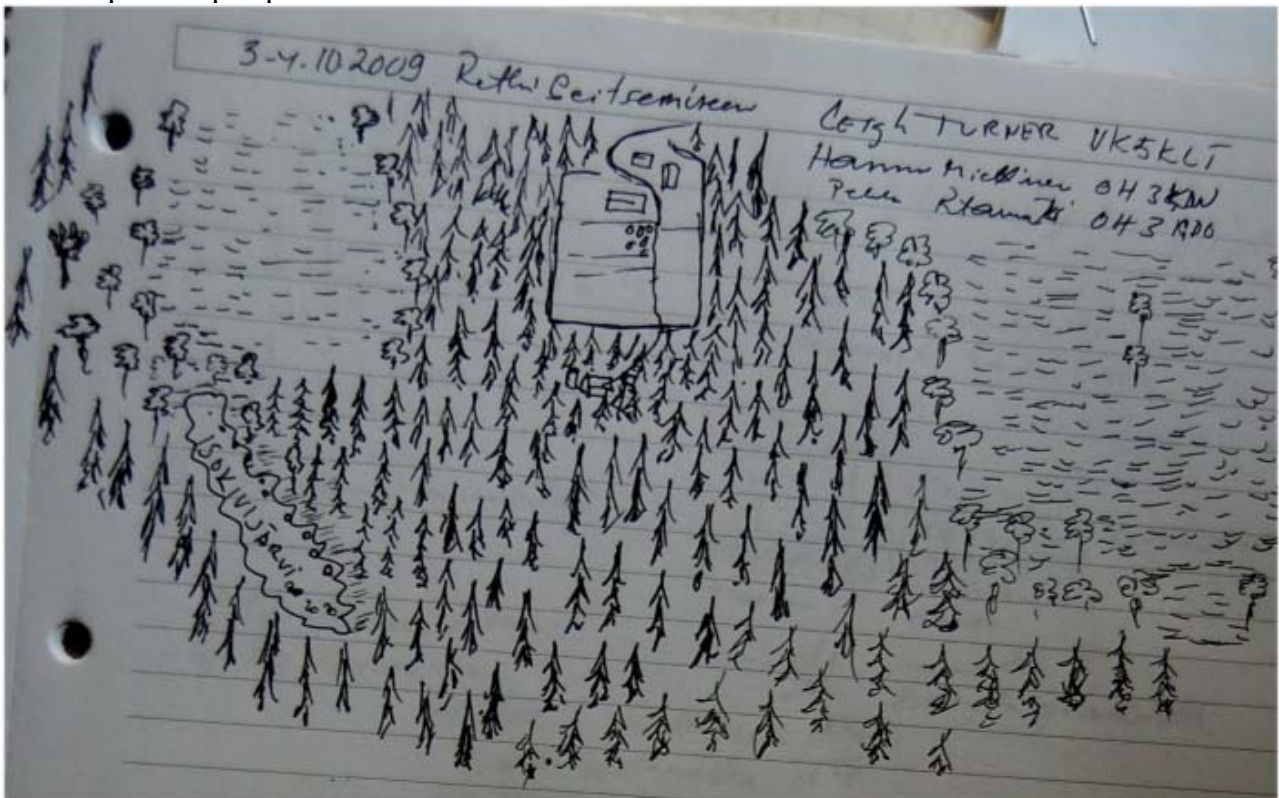 3-4.10.2009 Retki Seitsemiseen
Leigh TURNER VK5KLT
Hannu Miettinen OH3
OH3
ISOKIVIJÄRVI